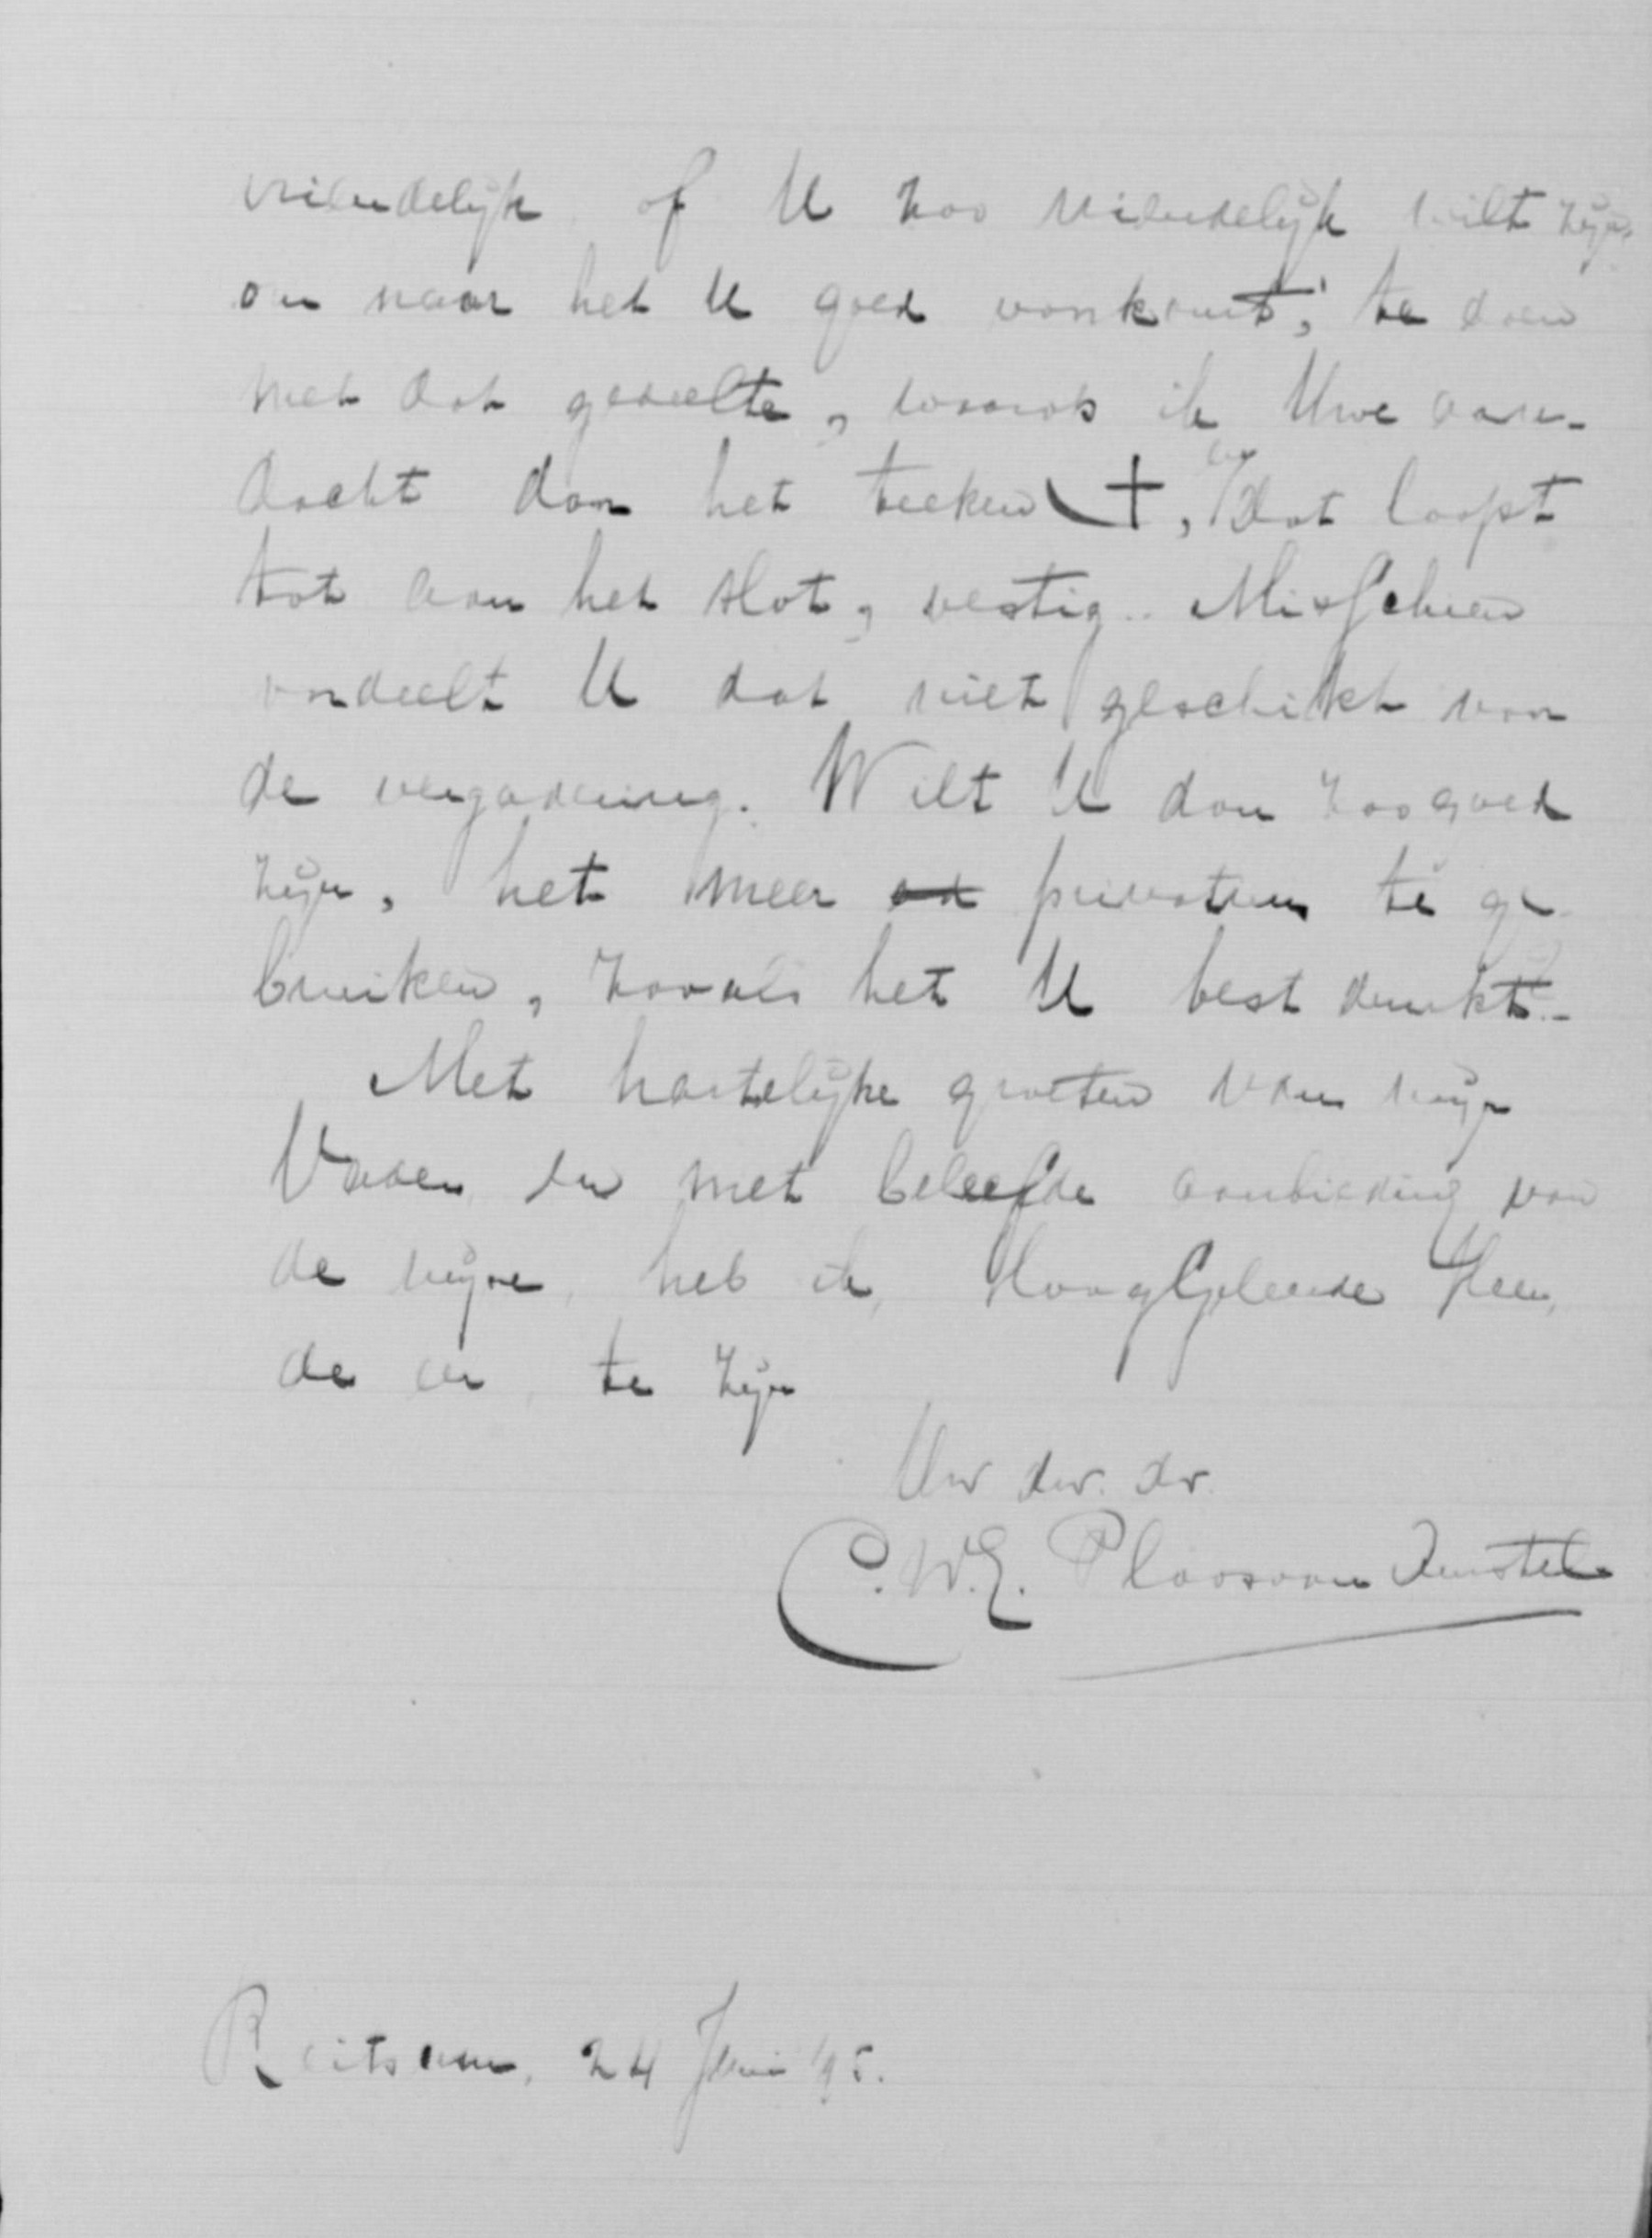 vriendelijk of U zoo vriendelijk wilt zijn,
om naar het U goed voorkomt, te doen
met dat gedeelte, waarop ik Uwe aan-
dacht door het teeken +, en dat loopt
tot aan het slot, vestig. Misschien
oordeelt U dat niet geschikt voor
de vergadering. Wilt U dan zoo goed
zijn, het meer privatim te ge-
bruiken, zooals het U best dunkt.-
Met hartelijke groeten van mijn
Vader en met beleefde aanbieding van
de mijne, heb ik, Hooggeleerde Heer,
de eer te zijn
Uw dw. dr.
C.W.E. Ploos van Amstel
Reitsum, 24 Juni '95.